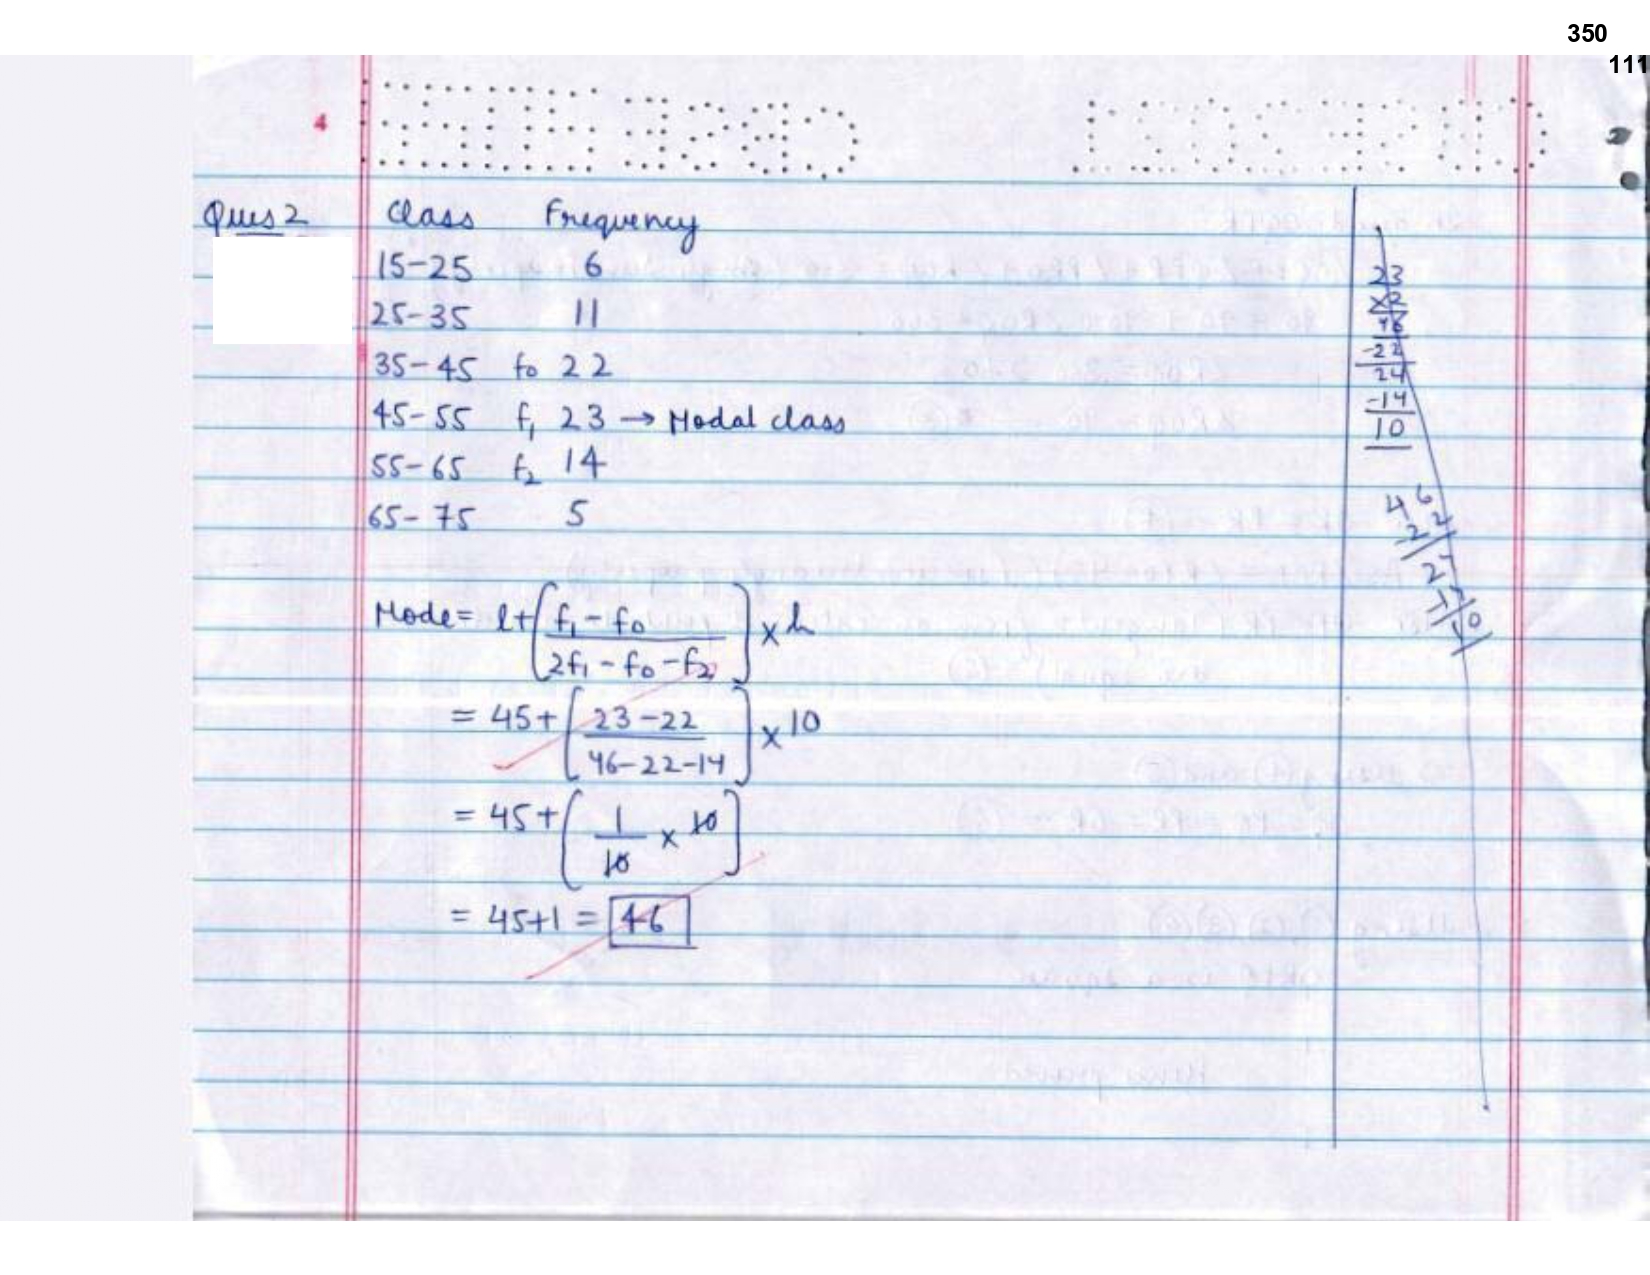 350
111
4
Ques 2 Class Frequency
15-25 6
25-35 11
35-45 f0 22
45-55 f1 23 → Modal class
55-65 f2 14
65-75 5
Mode = l+(f1-f0/2f1-f0-f2) × h
= 45+(23-22/46-22-14) × 10
= 45+(1/10 × 10)
= 45+1 = 46
23
×2
46
-22
24
-14
10
46
22